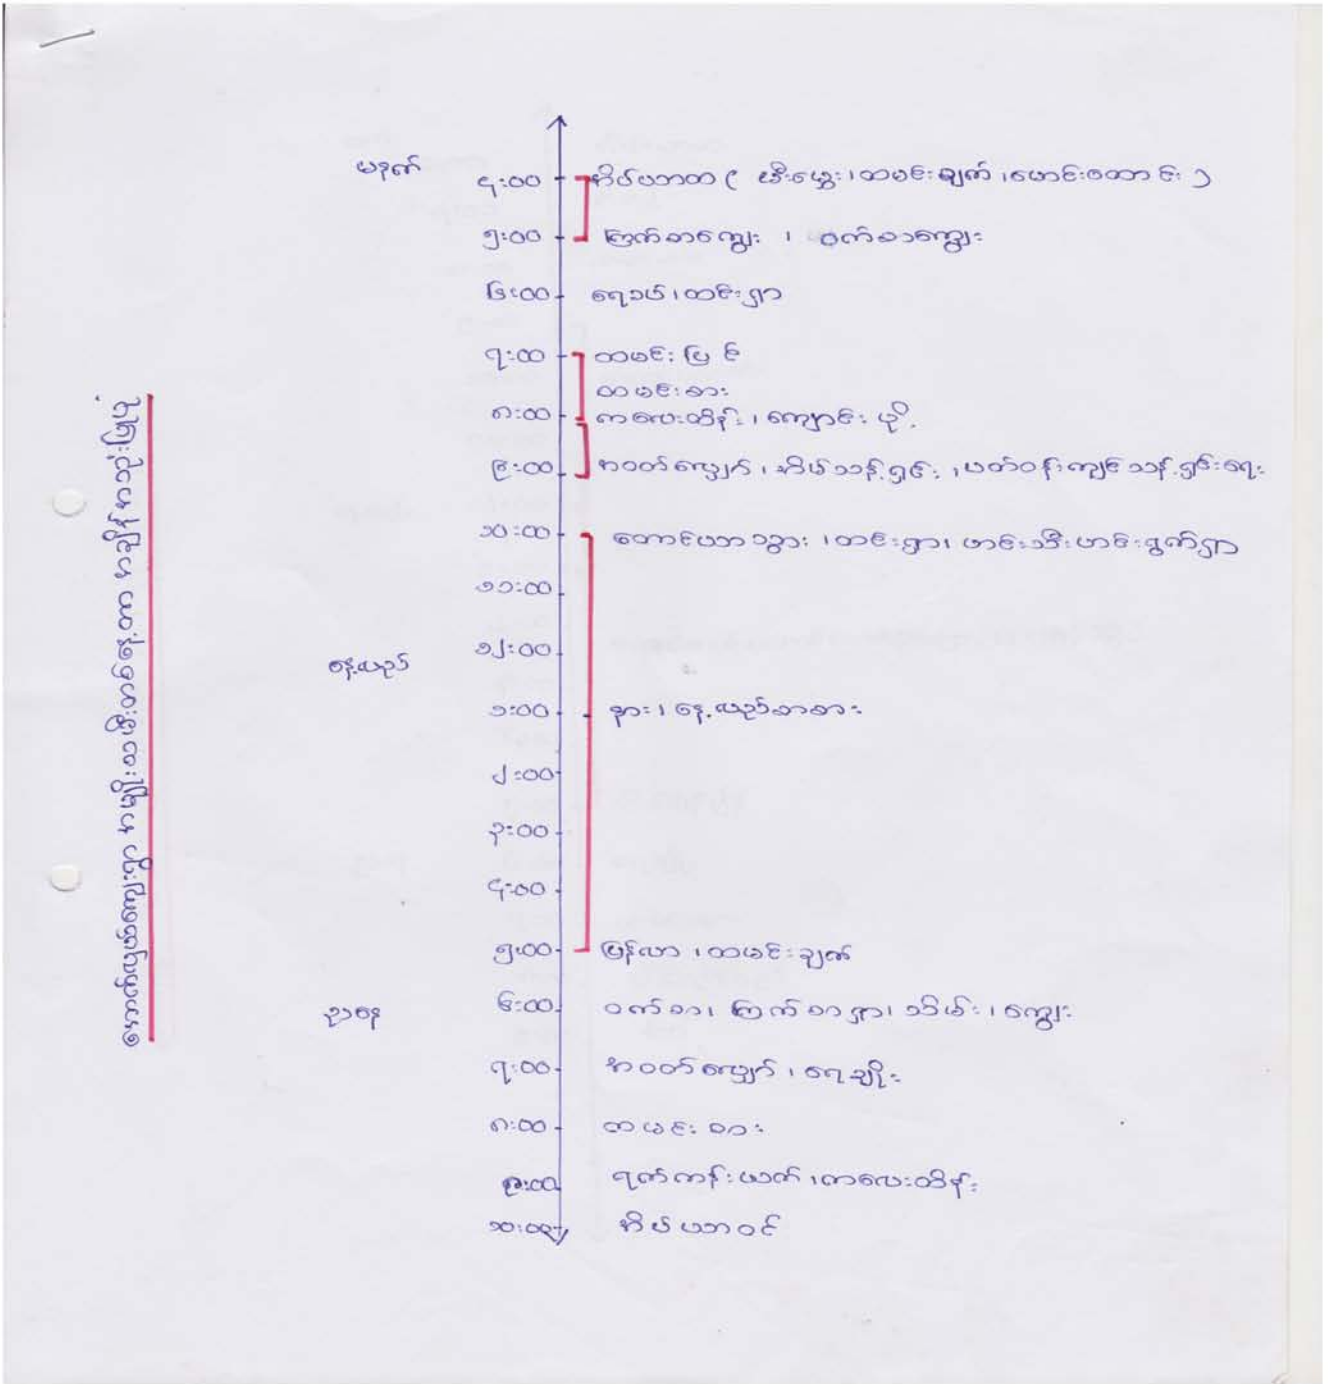 မနက်
၄:၀၀ အိပ်ယာထ ( မီးမွှေး၊ ထမင်းချက်၊ မောင်းထောင်း )
၅:၀၀ ကြက်စာကျွေး ၊ ဝက်စာကျွေး
၆:၀၀ ရေခပ်၊ ထင်းရှာ
၇:၀၀ ထမင်းပြင်
ထမင်းစား
၈:၀၀ ကလေးထိန်း၊ ကျောင်းပို့
၉:၀၀ အဝတ်လျှော်၊ အိမ်သန့်ရှင်း၊ ပတ်ဝန်းကျင်သန့်ရှင်းရေး
၁၀:၀၀ တောင်ယာသွား ၊ထင်းရှာ၊ ဟင်းသီးဟင်းရွက်ရှာ
၁၁:၀၀
၁၂:၀၀
နေ့လည်
၁:၀၀ နား၊ နေ့လည်စာစား
၂:၀၀
၃:၀၀
၄:၀၀
၅:၀၀ ပြန်လာ ၊ထမင်းချက်
ညနေ
၆:၀၀ ဝက်စာ၊ ကြက်စာရှာ၊ သိမ်း၊ ကျွေး
၇:၀၀ အဝတ်လျှော်၊ ရေချိုး
၈:၀၀ ထမင်းစား
၉:၀၀ ရက်ကန်းယက် ၊ကလေးထိန်း
၁၀:၀၀ အိပ်ယာဝင်